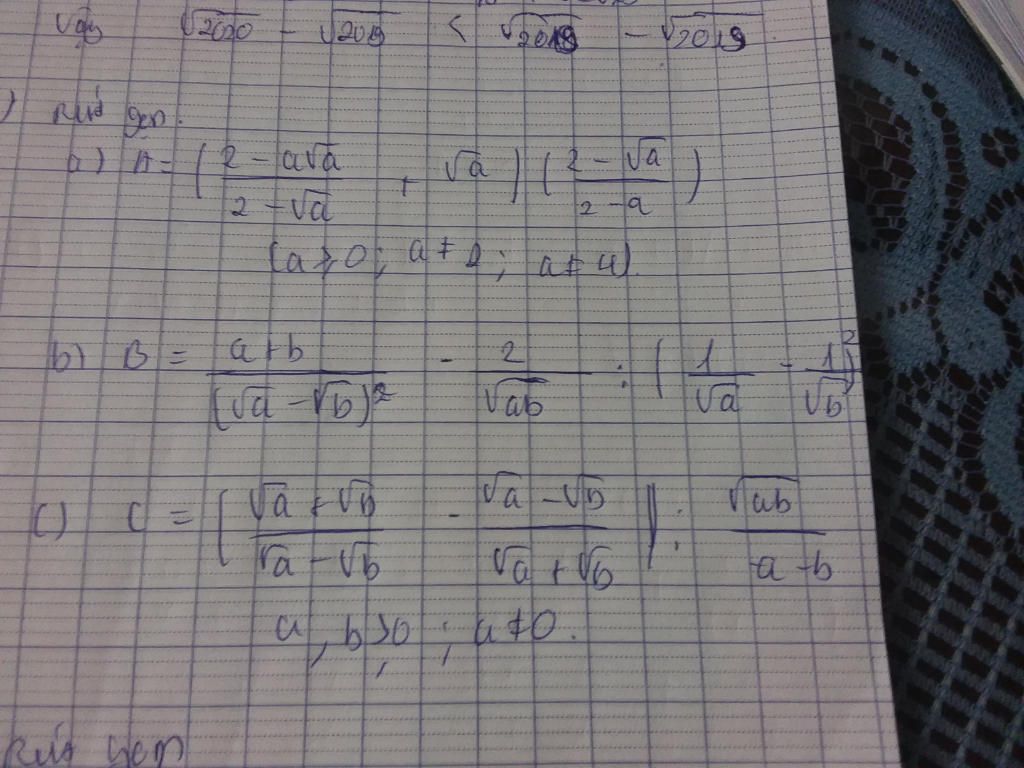 Vậy √2020 - √2019 < √2019 - √2019
) Rút gọn.
a) A = ( (2 - a√a)/(2 - √a) + √a ) ( (2 - √a)/(2 - a) )
(a ≥ 0 ; a ≠ 2 ; a ≠ 4)
b) B = (a + b)/(√a - √b)² - 2/√ab : ( 1/√a - 1/√b )²
c) C = ( (√a + √b)/(√a - √b) - (√a - √b)/(√a + √b) ) : √ab/(a - b)
a, b > 0 ; a ≠ 0.
Rút gọn